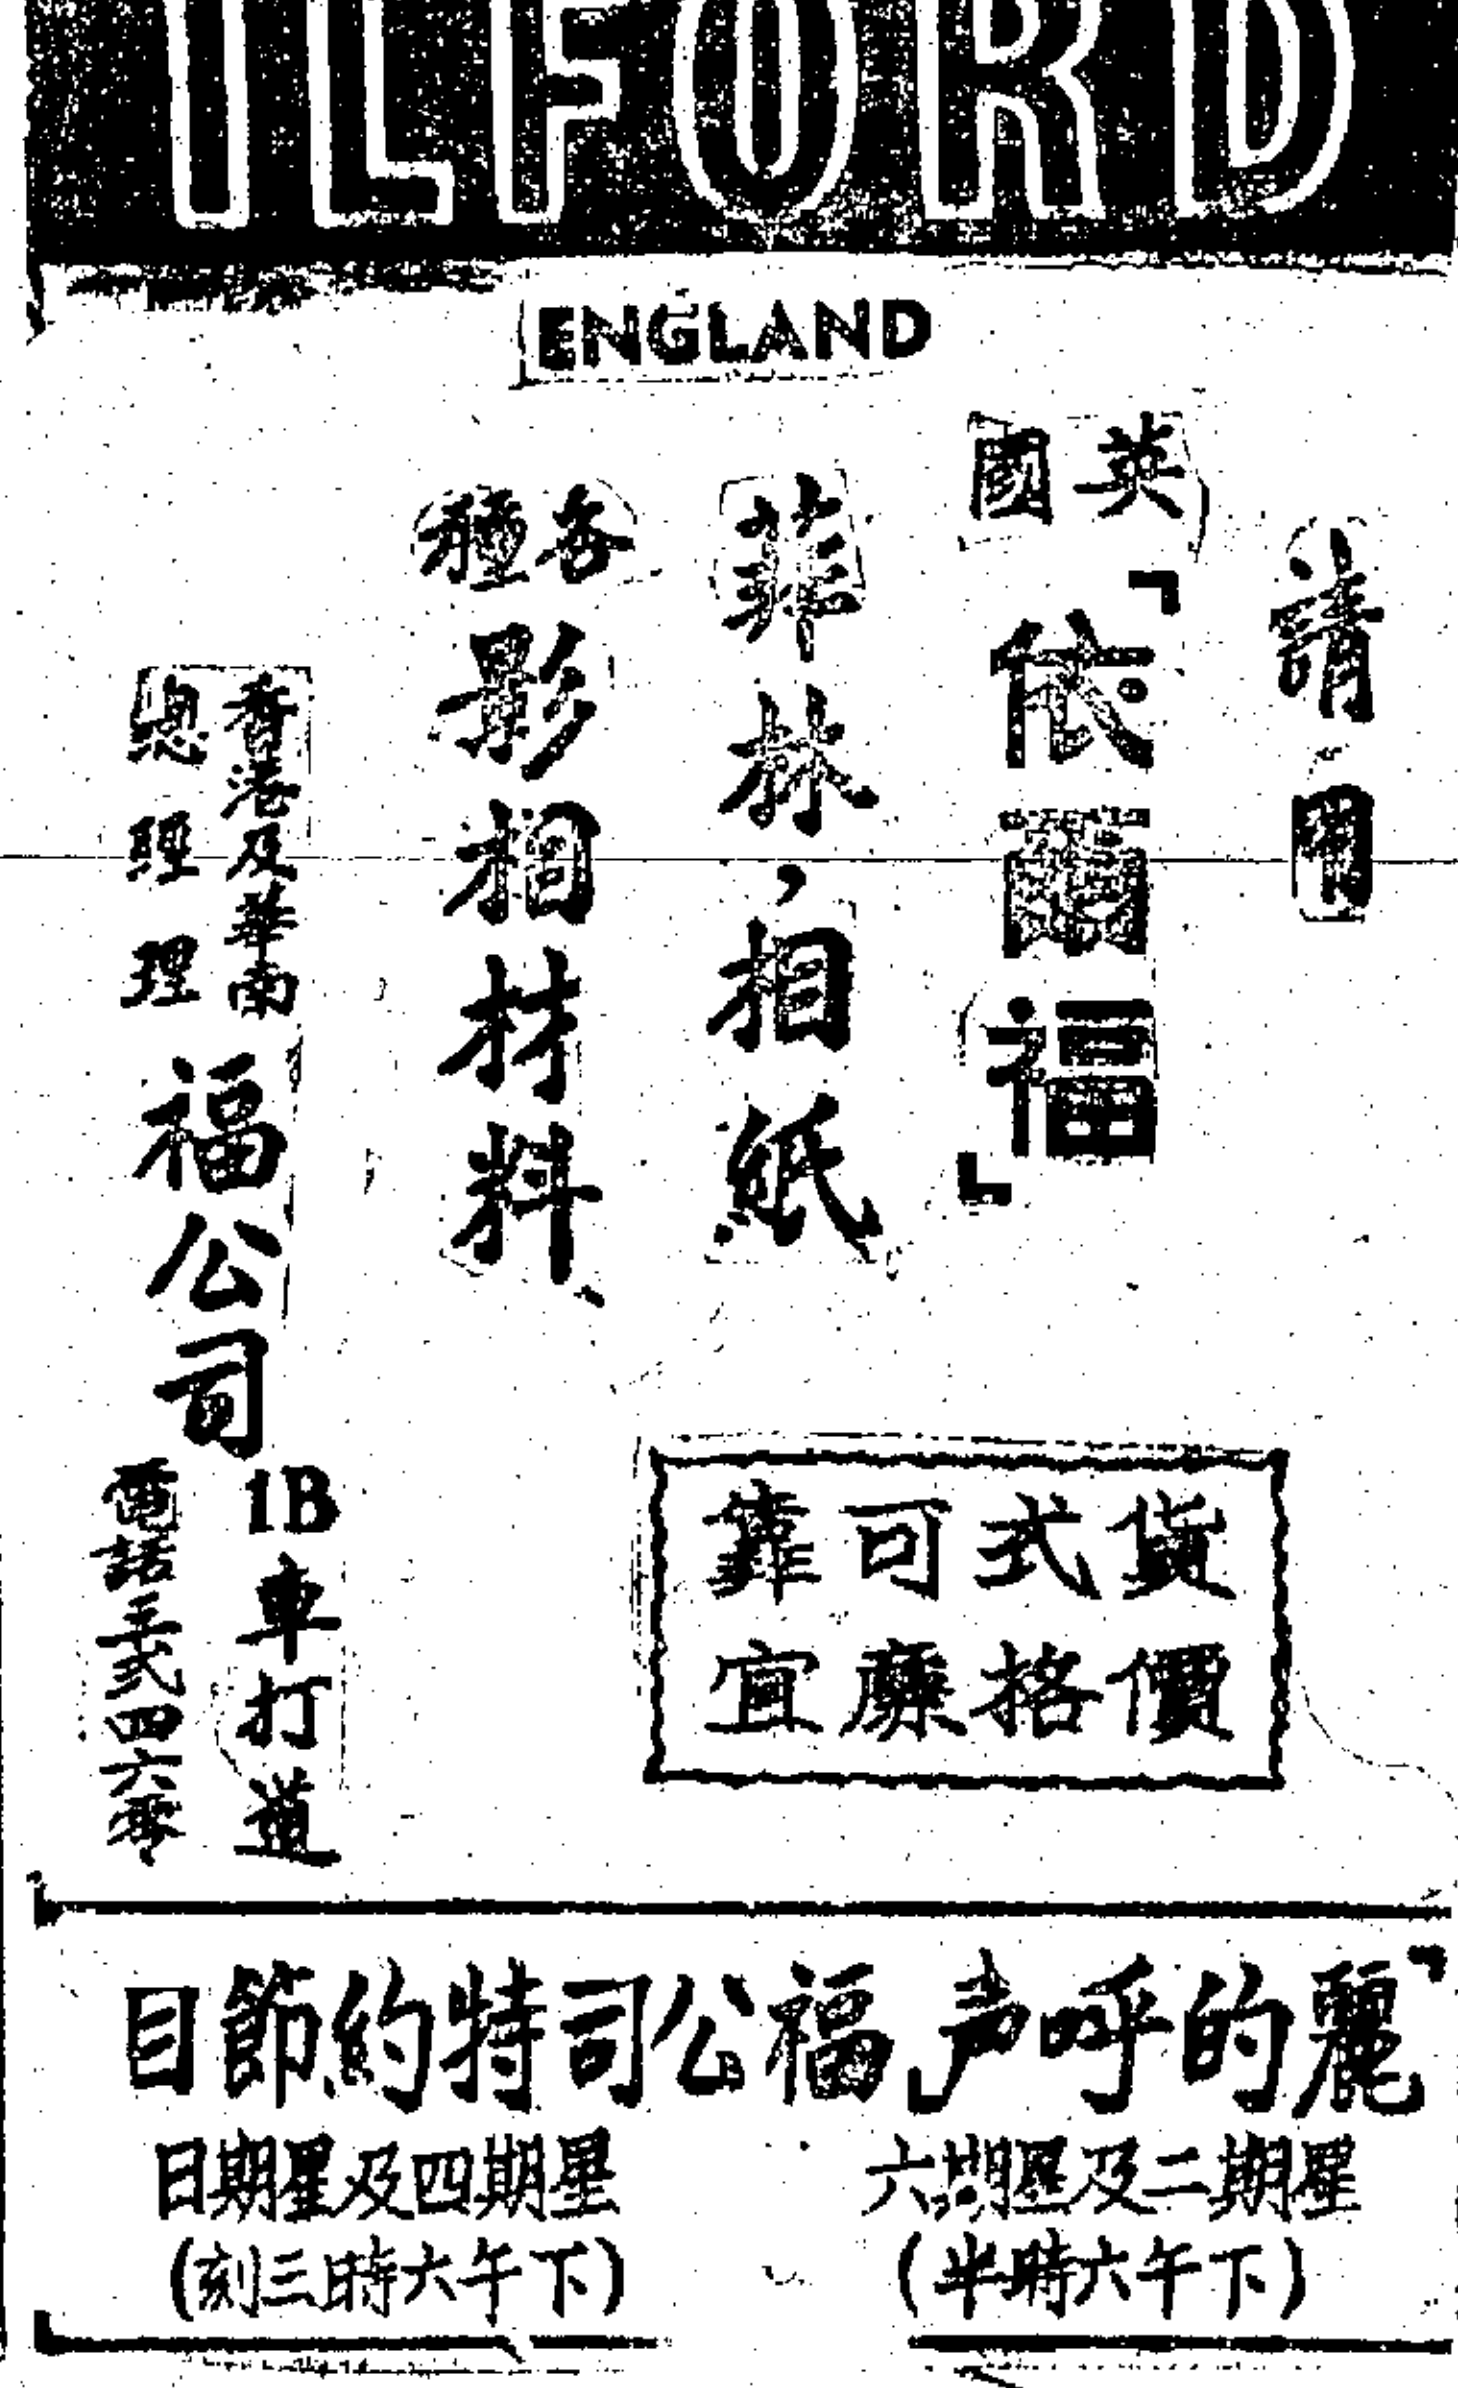 ILFORD
ENGLAND
請用
英國
「依爾福」
菲林，相紙
各種
影相材料、
香港及華南
總經理
福公司
1B車打道
電話三弍四六零
貨式可靠
價格廉宜
「麗的呼声」福公司特約節目
星期二及星期六
(下午六時半)
星期四及星期日
(下午六時三刻)